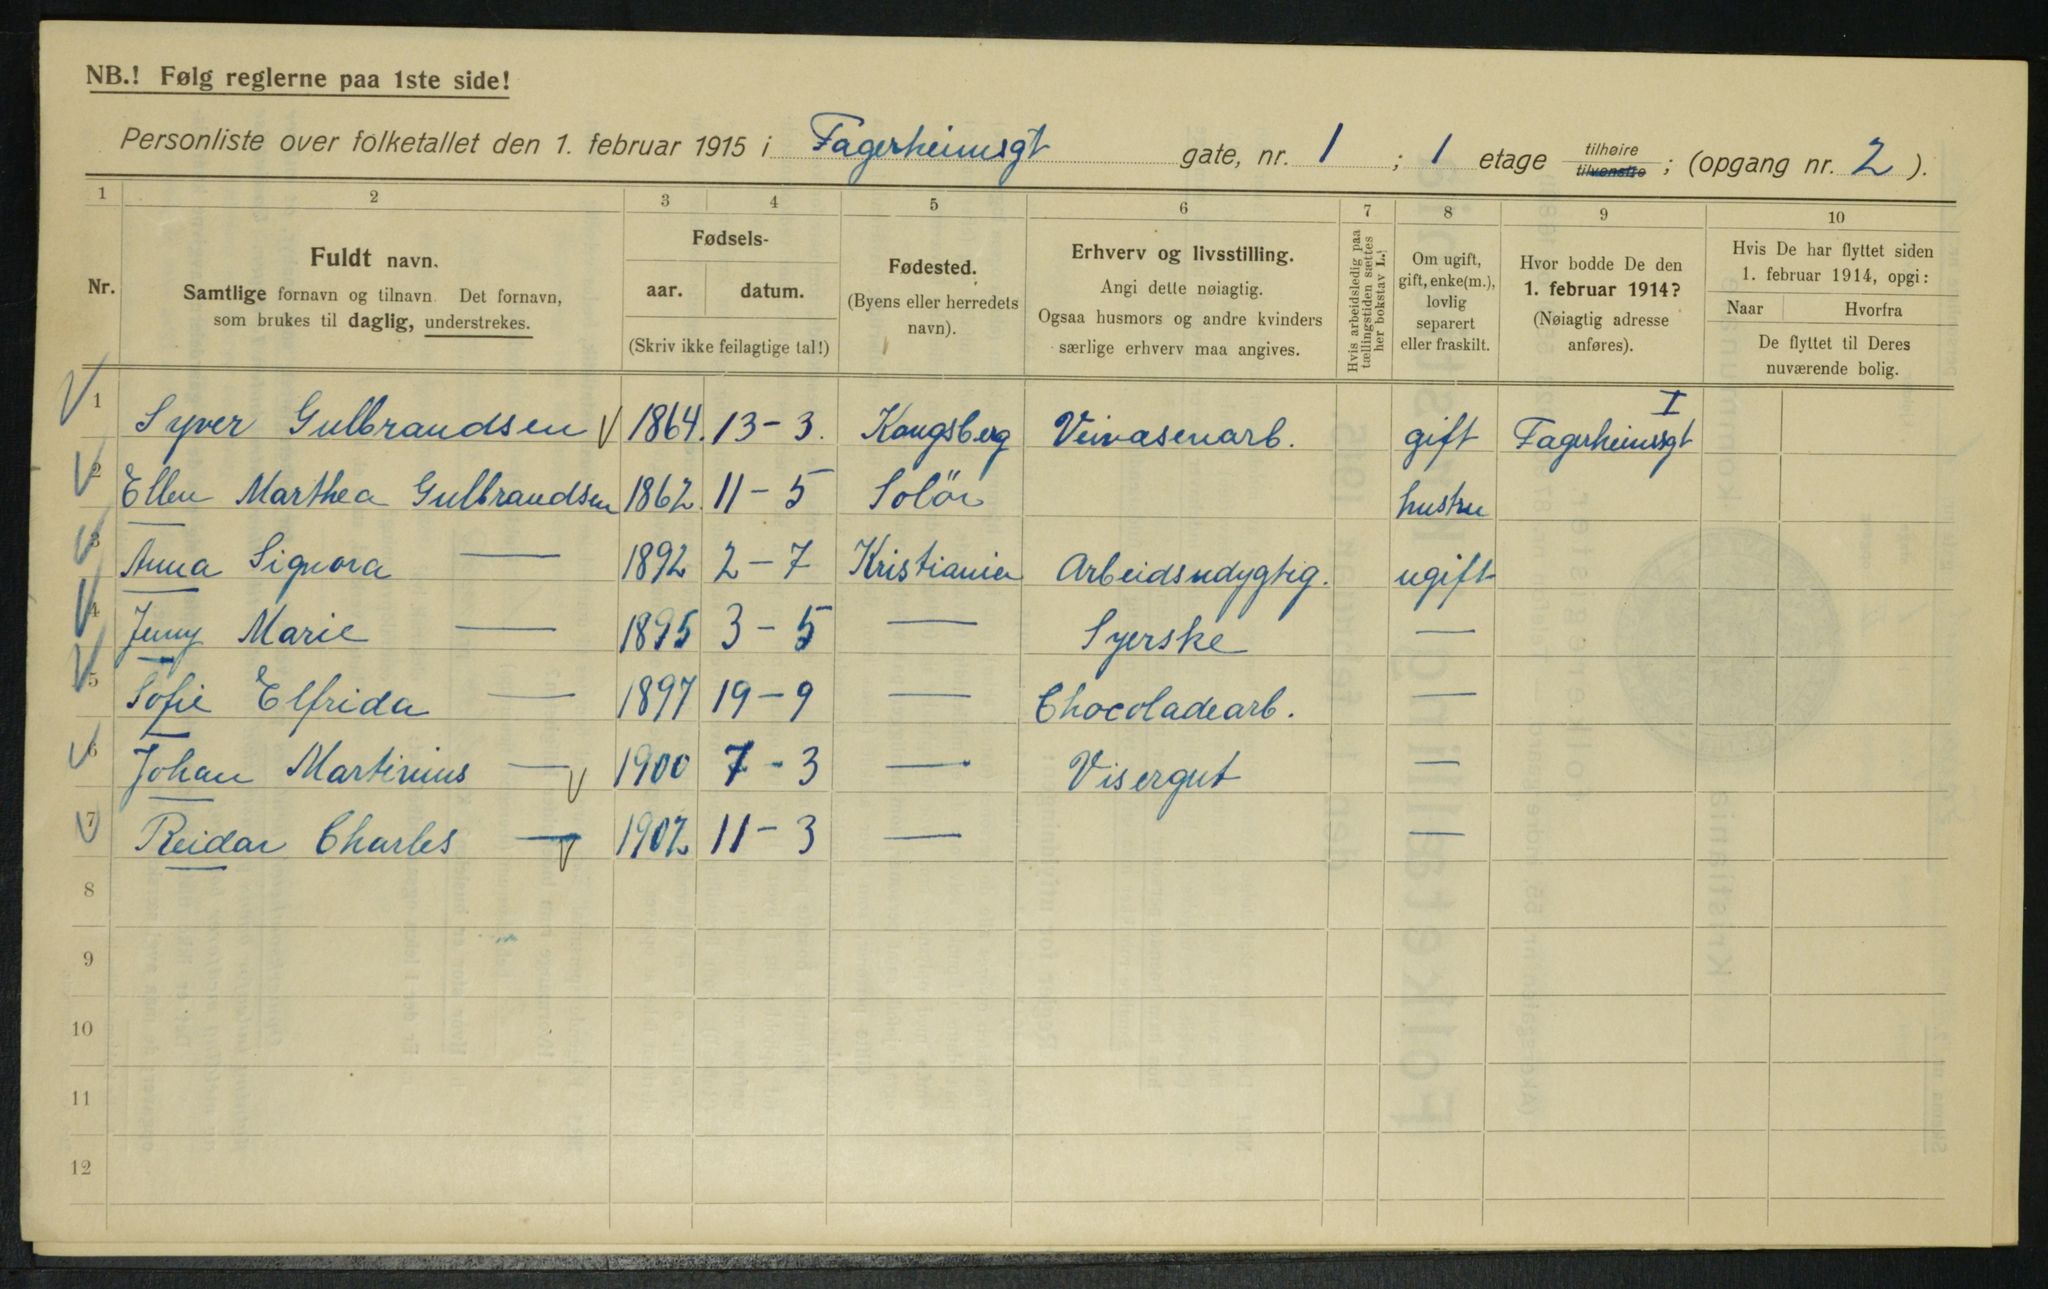 NB.! Følg reglerne paa 1ste side!
Personliste over folketallet den 1. februar 1915 i Fagerheimsgt gate, nr. 1 ; 1 etage tilhøire tilvenstre ; (opgang nr. 2 ).
1 2 3 4 5 6 7 8 9 10
Nr.
Fuldt navn.
Samtlige fornavn og tilnavn. Det fornavn,
som brukes til daglig, understrekes.
Fødsels-
aar. datum.
(Skriv ikke feilagtige tal!)
Fødested.
(Byens eller herredets
navn).
Erhverv og livsstilling.
Angi dette nøiagtig.
Ogsaa husmors og andre kvinders
særlige erhverv maa angives.
Hvis arbeidsledig paa
tællingstiden sættes
her bokstav L.
Om ugift,
gift, enke(m.),
lovlig
separert
eller fraskilt.
Hvor bodde De den
1. februar 1914?
(Nøiagtig adresse
anføres).
Hvis De har flyttet siden
1. februar 1914, opgi:
Naar Hvorfra
De flyttet til Deres
nuværende bolig.
1 Syver Gulbrandsen 1864. 13-3. Kongsberg Veivæsenarb. gift Fagerheimsgt I
2 Ellen Marthea Gulbrandsen 1862. 11-5 Solör hustru
3 Anna Signora — 1892 2-7 Kristiania Arbeidsudygtig. ugift
4 Jenny Marie — 1895 3-5 — Syerske —
5 Sofie Elfrida — 1897 19-9 — Chocoladearb. —
6 Johan Martinius — 1900 7-3 — Visergut —
7 Reidar Charles — 1902 11-3 — —
8
9
10
11
12